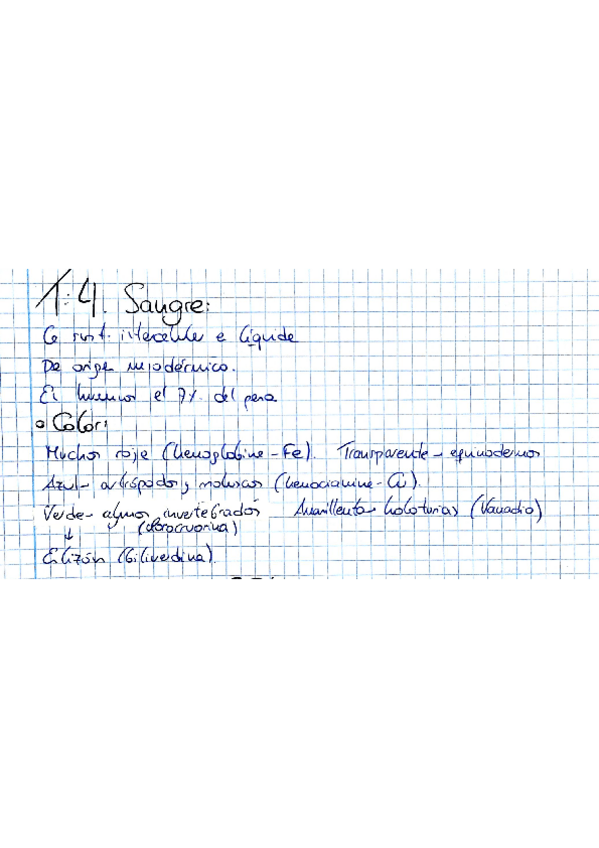 1.4. Sangre:
La sust. intercelular e líquida
De origen mesodérmico.
En humanos el 7% del peso
• Color:
Muchos roja (hemoglobina - Fe). Transparente - equinodermos
Azul - artrópodos y moluscos (hemocianina - Cu).
Verde - algunos invertebrados Amarillenta - holoturias (Vanadio)
(clorocruorina)
↓
Elizón (biliverdina).